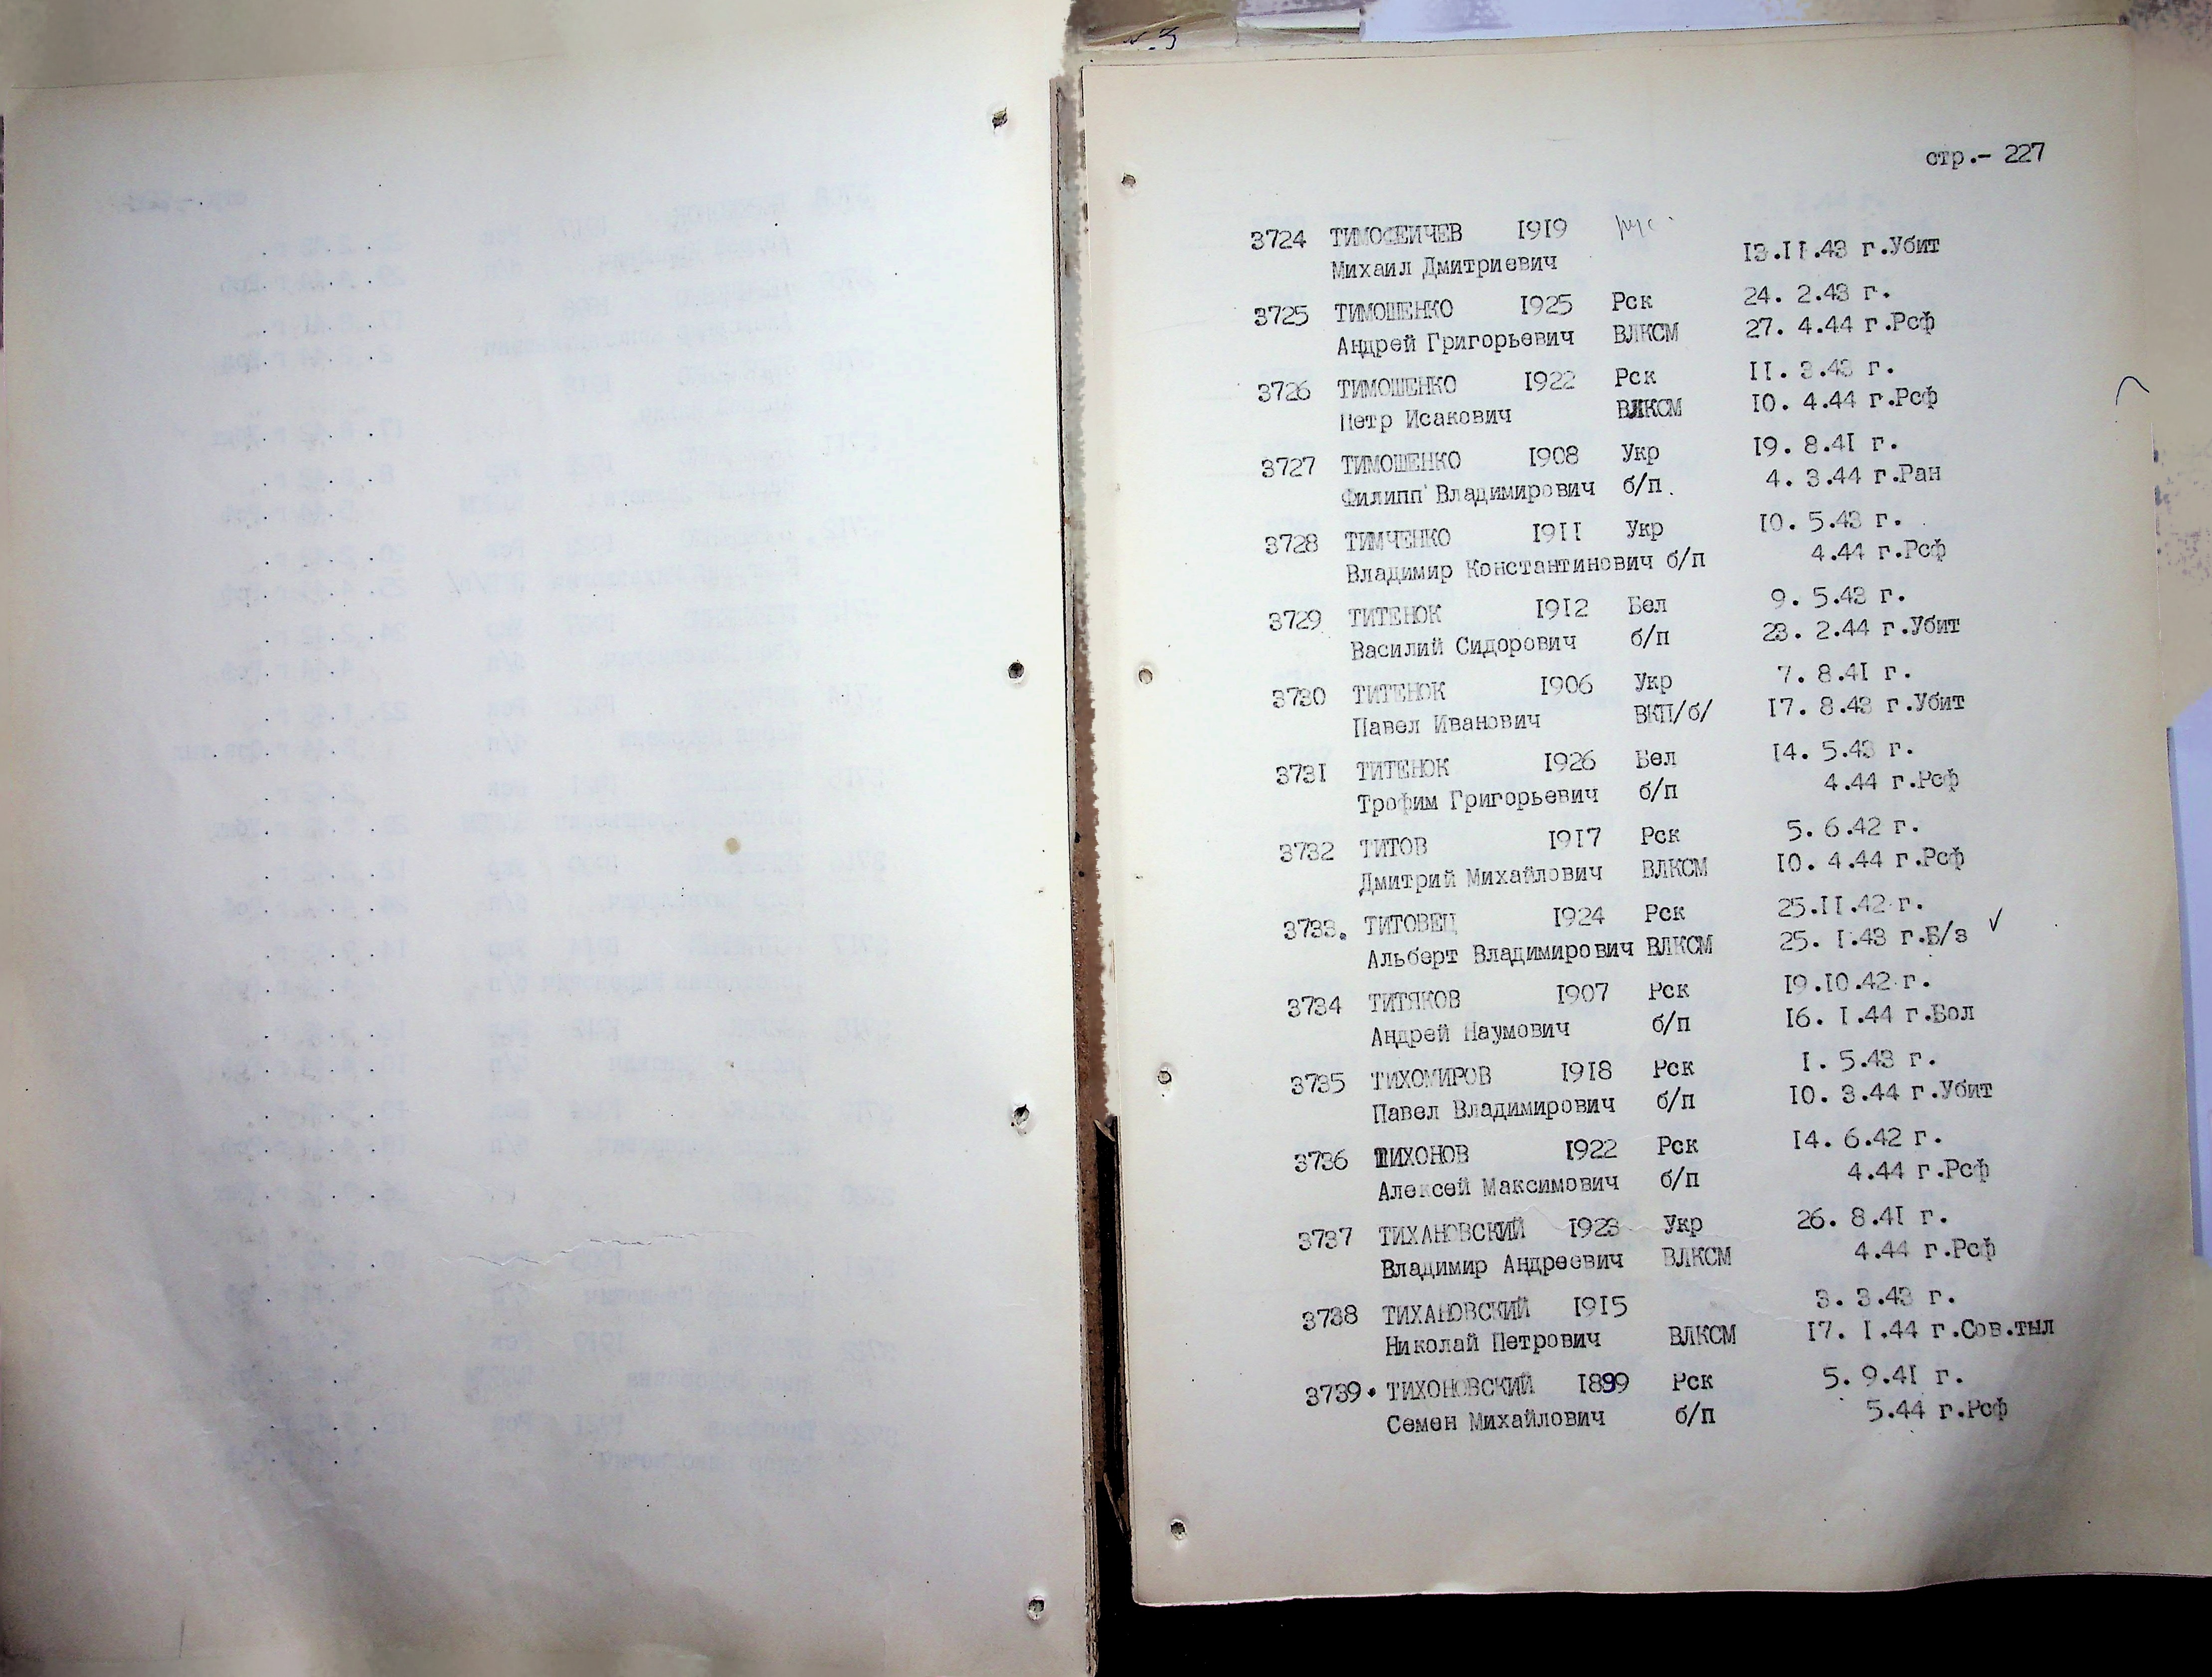 стр.- 227
3724 ТИМОФЕИЧЕВ 1919 рус
Михаил Дмитриевич 13.11.43 г.Убит
3725 ТИМОШЕНКО 1925 Рск 24. 2.43 г.
Андрей Григорьевич ВЛКСМ 27. 4.44 г.Рсф
3726 ТИМОШЕНКО 1922 Рск 11. 3.43 г.
Петр Исакович ВЛКСМ 10. 4.44 г.Рсф
3727 ТИМОШЕНКО 1908 Укр 19. 8.41 г.
Филипп Владимирович б/п. 4. 3.44 г.Ран
3728 ТИМЧЕНКО 1911 Укр 10. 5.43 г.
Владимир Константинович б/п 4.44 г.Рсф
3729 ТИТЕНОК 1912 Бел 9. 5.43 г.
Василий Сидорович б/п 23. 2.44 г.Убит
3730 ТИТЕНОК 1906 Укр 7. 8.41 г.
Павел Иванович ВКП/б/ 17. 8.43 г.Убит
3731 ТИТЕНОК 1926 Бел 14. 5.43 г.
Трофим Григорьевич б/п 4.44 г.Рсф
3732 ТИТОВ 1917 Рск 5. 6.42 г.
Дмитрий Михайлович ВЛКСМ 10. 4.44 г.Рсф
3733. ТИТОВЕЦ 1924 Рск 25.11.42 г.
Альберт Владимирович ВЛКСМ 25. 1.43 г.Б/з ✓
3734 ТИТЯКОВ 1907 Рск 19.10.42 г.
Андрей Наумович б/п 16. 1.44 г.Бол
3735 ТИХОМИРОВ 1918 Рск 1. 5.43 г.
Павел Владимирович б/п 10. 3.44 г.Убит
3736 ТИХОНОВ 1922 Рск 14. 6.42 г.
Алексей Максимович б/п 4.44 г.Рсф
3737 ТИХАНОВСКИЙ 1923 Укр 26. 8.41 г.
Владимир Андреевич ВЛКСМ 4.44 г.Рсф
3738 ТИХАНОВСКИЙ 1915 3. 3.43 г.
Николай Петрович ВЛКСМ 17. 1.44 г.Сов.тыл
3739. ТИХОНОВСКИЙ 1899 Рск 5. 9.41 г.
Семен Михайлович б/п 5.44 г.Рсф